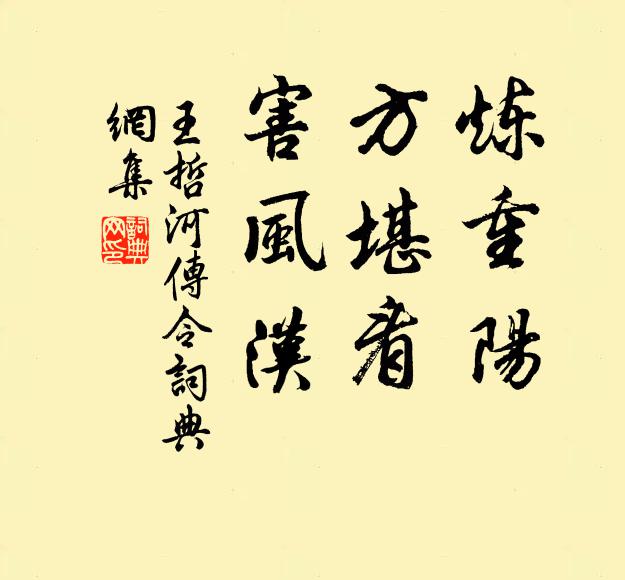 炼重陽
方堪看
害風漢
王哲河傳令詞典
網集
詞典
网印